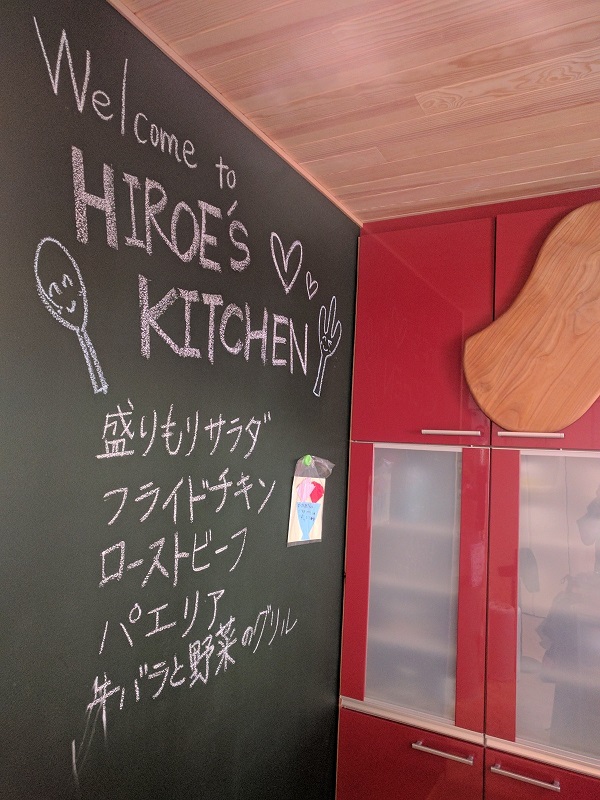 Welcome to
HIROE's
KITCHEN
盛りもりサラダ
フライドチキン
ローストビーフ
パエリア
牛バラと野菜のグリル